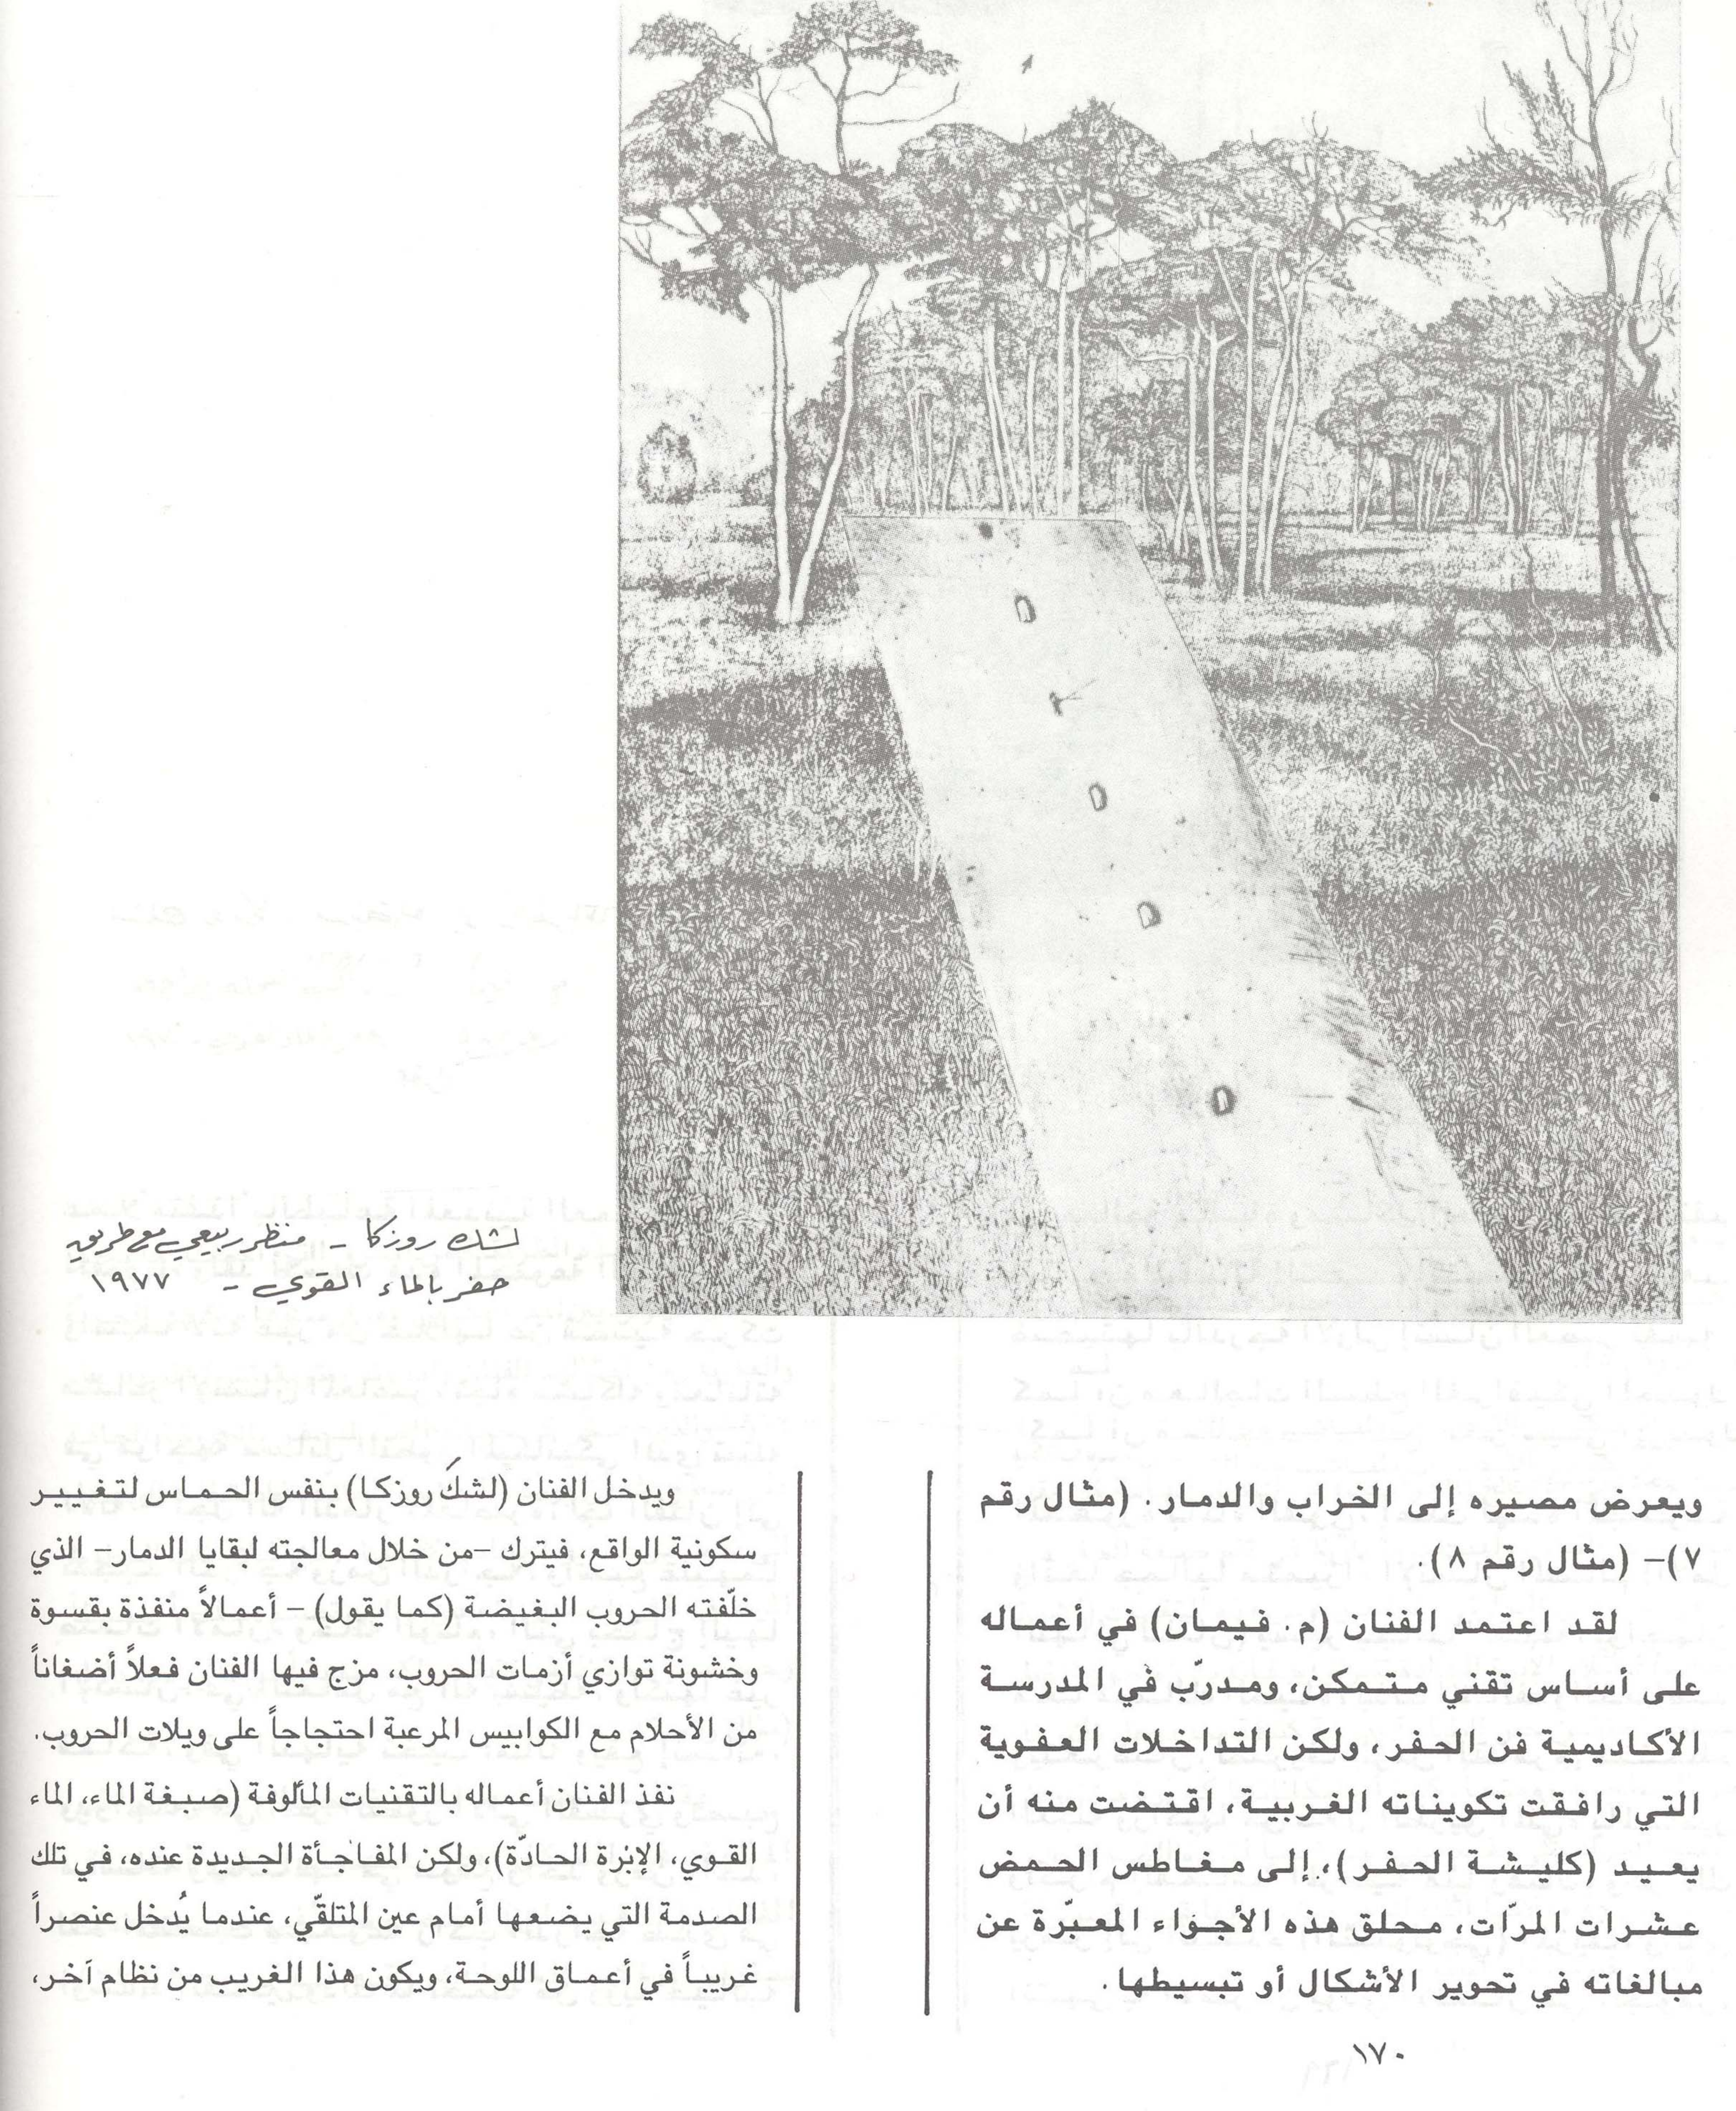 لشك روزكا - منظر ربيعي مع طريق
حفر بالماء القوي - ١٩٧٧
ويعرض مصيره إلى الخراب والدمار. (مثال رقم
٧)- (مثال رقم ٨).
لقد اعتمد الفنان (م. فيمان) في أعماله
على أساس تقني متمكن، ومدرّب في المدرسة
الأكاديمية فن الحفر، ولكن التداخلات العفوية
التي رافقت تكويناته الغربية، اقتضت منه أن
يعيد (كليشة الحفر)، إلى مغاطس الحمض
عشرات المرّات، محلق هذه الأجواء المعبّرة عن
مبالغاته في تحوير الأشكال أو تبسيطها.
ويدخل الفنان (لشكَ روزكا) بنفس الحماس لتغيير
سكونية الواقع، فيترك -من خلال معالجته لبقايا الدمار- الذي
خلّفته الحروب البغيضة (كما يقول) - أعمالاً منفذة بقسوة
وخشونة توازي أزمات الحروب، مزج فيها الفنان فعلاً أضغاناً
من الأحلام مع الكوابيس المرعبة احتجاجاً على ويلات الحروب.
نفذ الفنان أعماله بالتقنيات المألوفة (صبغة الماء، الماء
القوي، الإبرة الحادّة)، ولكن المفاجأة الجديدة عنده، في تلك
الصدمة التي يضعها أمام عين المتلقّي، عندما يُدخل عنصراً
غريباً في أعماق اللوحة، ويكون هذا الغريب من نظام آخر،
١٧٠